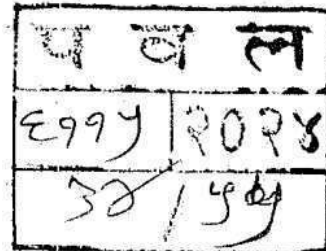 प व ल
६११५ २०२४
३२ / ५७